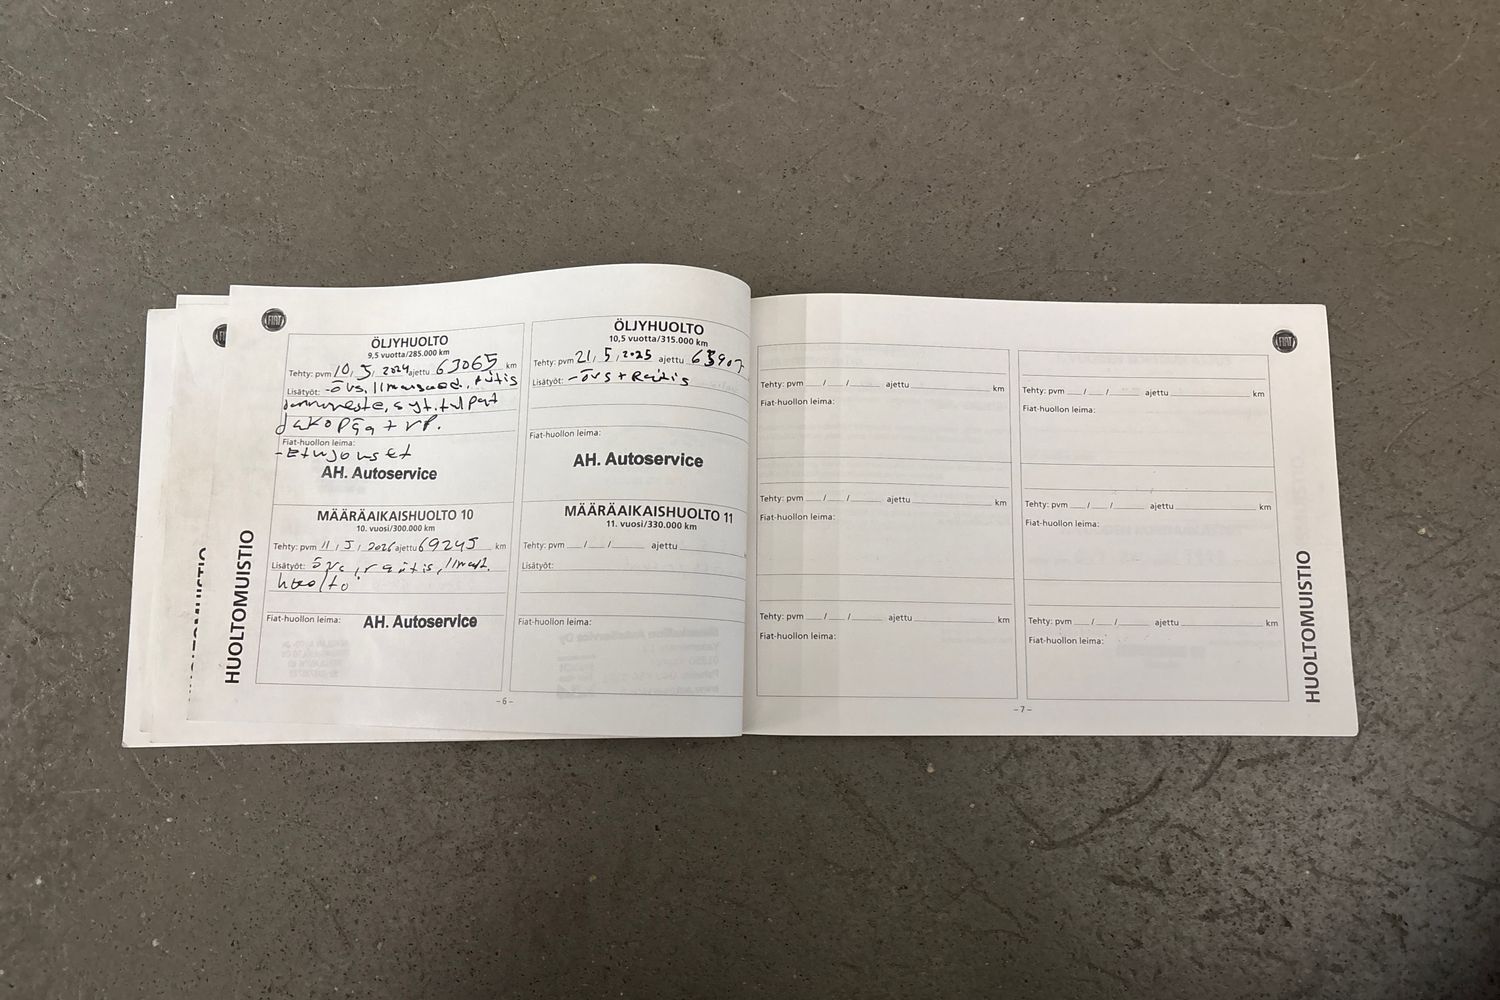 FIAT
ÖLJYHUOLTO
9,5 vuotta/285.000 km
Tehty: pvm 10, 5, 2024 ajettu 63065 km
Lisätyöt: -övs, raitis
jarruneste, syt.tulpat
jakopää + vp.
Fiat-huollon leima:
AH. Autoservice
MÄÄRÄAIKAISHUOLTO 10
10. vuosi/300.000 km
Tehty: pvm 11, 5, 2026 ajettu 69245 km
Lisätyöt: övs, raitis,
huolto
Fiat-huollon leima: AH. Autoservice
ÖLJYHUOLTO
10,5 vuotta/315.000 km
Tehty: pvm 21, 5, 2025 ajettu 63907
Lisätyöt: -övs + Raitis
Fiat-huollon leima:
AH. Autoservice
MÄÄRÄAIKAISHUOLTO 11
11. vuosi/330.000 km
Tehty: pvm __/__/____ ajettu
Lisätyöt:
Fiat-huollon leima:
HUOLTOMUISTIO
- 6 -
FIAT
Tehty: pvm __/__/____ ajettu ____ km
Fiat-huollon leima:
Tehty: pvm __/__/____ ajettu ____ km
Fiat-huollon leima:
Tehty: pvm __/__/____ ajettu ____ km
Fiat-huollon leima:
Tehty: pvm __/__/____ ajettu ____ km
Fiat-huollon leima:
Tehty: pvm __/__/____ ajettu ____ km
Fiat-huollon leima:
Tehty: pvm __/__/____ ajettu ____ km
Fiat-huollon leima:
HUOLTOMUISTIO
- 7 -